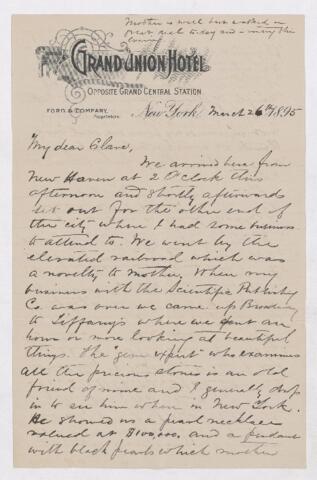 Mother is well but walked a
great deal to day and is
GRAND UNION HOTEL
OPPOSITE GRAND CENTRAL STATION
FORD & COMPANY,
Proprietors.
New York, March 26th 1895
My dear Clara,
We arrived here from
New Haven at 2 O'clock this
afternoon and shortly afterwards
set out for the other end of
the city where I had some business
to attend to. We went by the
elevated railroad which was
a novelty to mother. When my
business with the Scientific Publishing
Co. was over we came up Broadway
to Tiffany's where we spent an
hour or more looking at beautiful
things. The gem expert who examines
all the precious stones is an old
friend of mine and I generally drop
in to see him when in New York.
He showed us a pearl necklace
valued at $100,000. and a pendant
with black pearls which mother